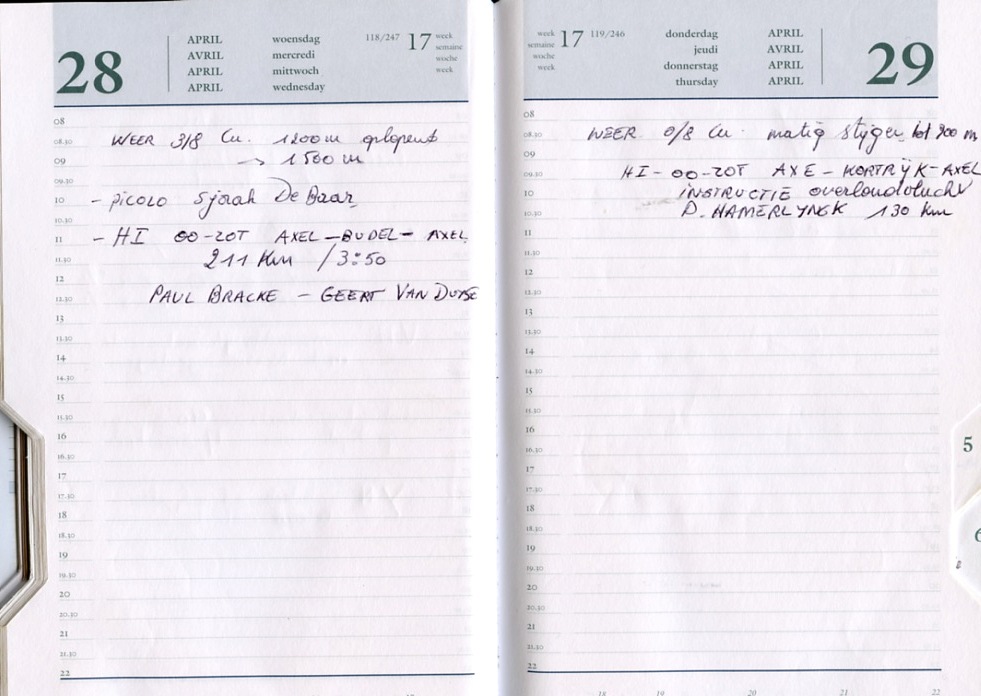 28
APRIL woensdag 118/247 17 week
AVRIL mercredi semaine
APRIL mittwoch woche
APRIL wednesday week
08
WEER 3/8 Cu. 1200 m oplopend
08.30
→ 1500 m
09
09.30
- PICOLO Sjorah De Baar
10
10.30
- HI OO-ZOT AXEL - BUDEL - AXEL
11
211 Km / 3:50
11.30
12
PAUL BRACKE - GEERT VAN DUYSE
12.30
13
13.30
14
14.30
15
15.30
16
16.30
17
17.30
18
18.30
19
19.30
20
20.30
21
21.30
22
week 17 119/246 donderdag APRIL
semaine jeudi AVRIL
woche donnerstag APRIL
week thursday APRIL
29
08
WEER 0/8 Cu. matig stijgen tot 900 m
08.30
09
HI - OO-ZOT AXE - KORTRIJK - AXEL
09.30
INSTRUCTIE overlandvlucht
10
P. HAMERLYNCK 130 Km
10.30
11
11.30
12
12.30
13
13.30
14
14.30
15
15.30
16
16.30
17
17.30
18
18.30
19
19.30
20
20.30
21
21.30
22
5
6
18 19 20 21 22